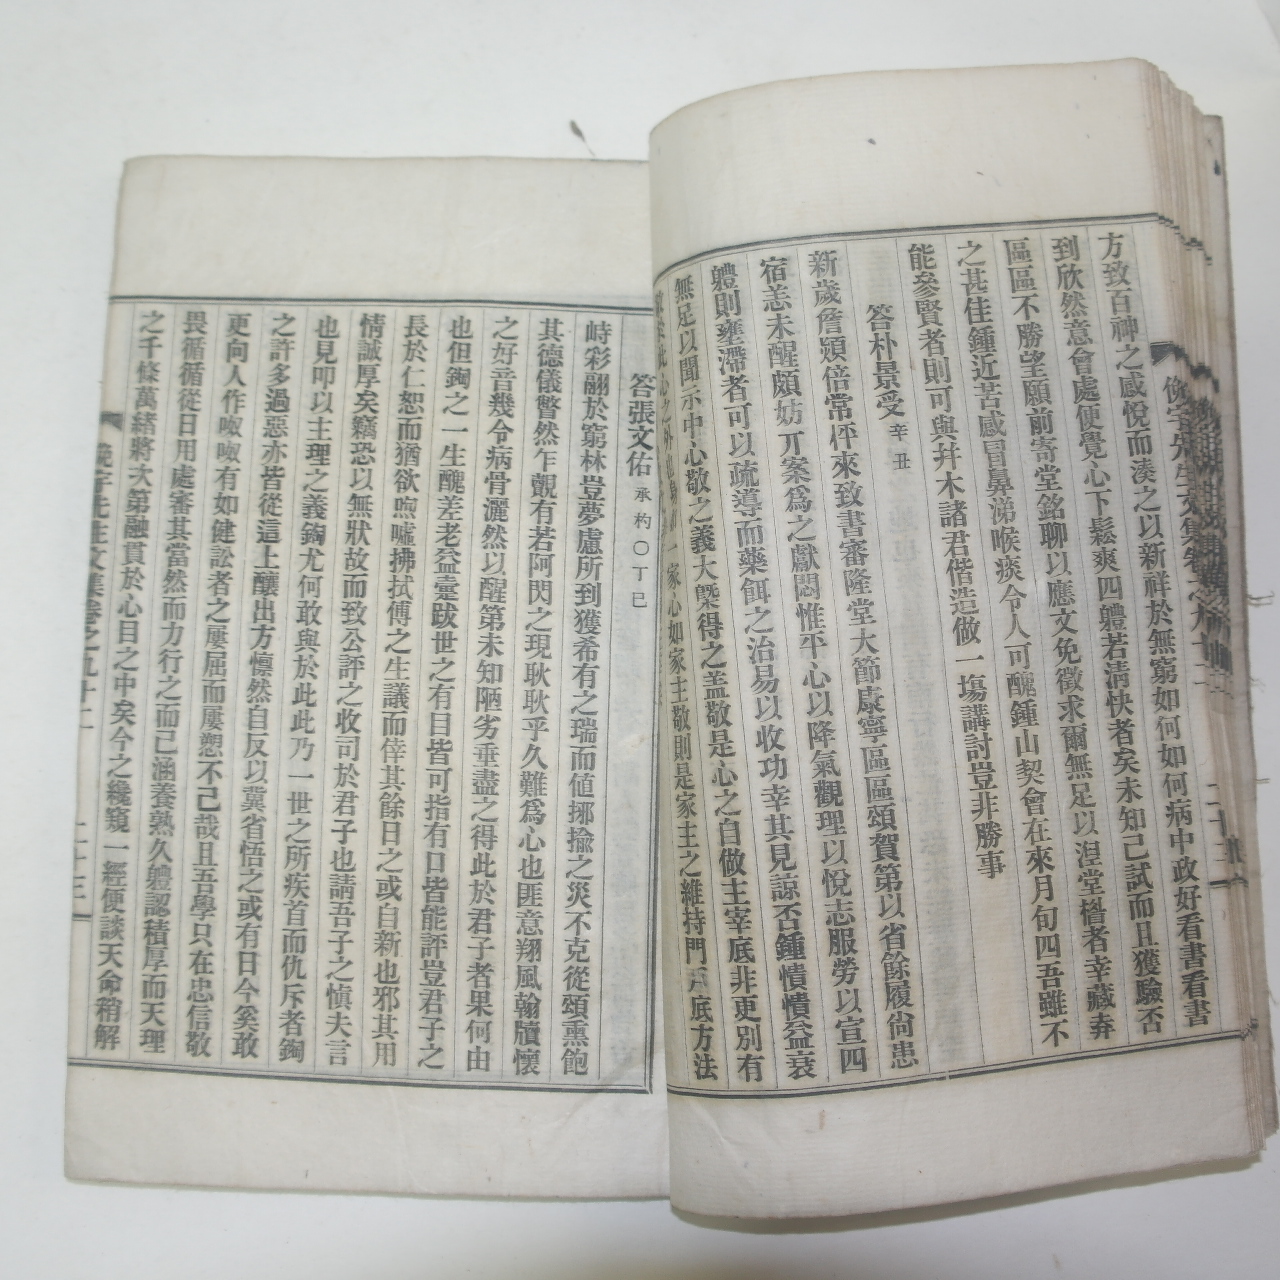 俛宇先生文集卷之九十二
二十二
方致百神之感悅而湊之以新祥於無窮如何如何病中政好看書看書
到欣然意會處便覺心下鬆爽四體若淸快者矣未知己試而且獲驗否
區區不勝望願前寄堂銘聊以應文免徵求爾無足以湼堂楣者幸藏弆
之甚佳鍾近苦感冒鼻涕喉痰令人可醜鍾山契會在來月旬四吾雖不
能參賢者則可與幷木諸君偕造做一塲講討豈非勝事
答朴景受 辛丑
新歲詹熲倍常伻來致書審隆堂大節康寧區區頌賀第以省餘履尙患
宿恙未醒頗妨丌案爲之獻悶惟平心以降氣觀理以悅志服勞以宣四
軆則壅滯者可以疏導而藥餌之治易以收功幸其見諒否鍾憒憒益衰
無足以聞示中心敬之義大槩得之盖敬是心之自做主宰底非更別有
一家心如家主敬則是家主之維持門戶底方法
答張文佑 承杓○丁巳
峙彩翮於窮林豈夢慮所到獲希有之瑞而値挪揄之災不克從頭熏飽
其德儀瞥然乍覿有若阿閃之現耿耿乎久難爲心也匪意翔風翰牘懷
之好音幾令病骨灑然以醒第未知陋劣垂盡之得此於君子者果何由
也但鋾之一生醜差老益臺跋世之有目皆可指有口皆能評豈君子之
長於仁恕而猶欲喣嘘拂拭傅之生議而倖其餘日之或自新也邪其用
情誠厚矣竊恐以無狀故而致公評之收司於君子也請吾子之愼夫言
也見叩以主理之義鋾尤何敢與於此此乃一世之所疾首而仇斥者鋾
之許多過惡亦皆從這上釀出方懍然自反以冀省悟之或有日今奚敢
更向人作呶呶有如健訟者之屢屈而屢愬不己哉且吾學只在忠信敬
畏循循從日用處審其當然而力行之而己涵養熟久軆認積厚而天理
之千條萬緖將次第融貫於心目之中矣今之纔窺一經便談天命稍解
俛宇先生文集卷之九十二
二十三